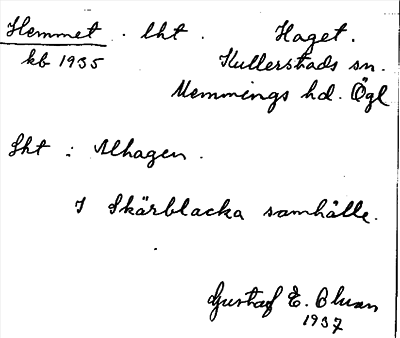 Hemmet . lht . Haget .
kb 1935 Kullerstads sn.
Memmings hd. Ögl
Sht : Alhagen .
I Skärblacka samhälle.
Gustaf E. Bluan
1937